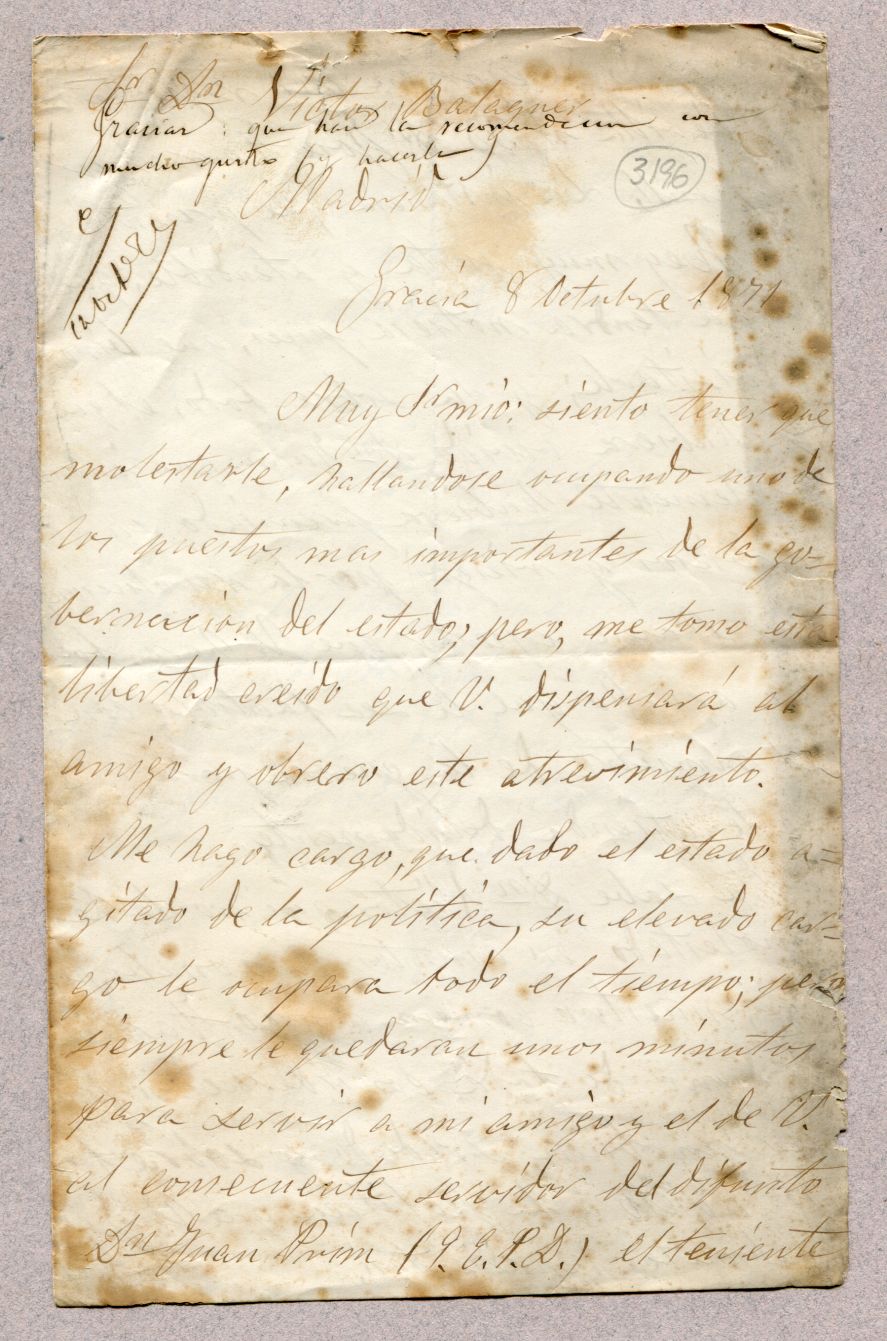 Sr Dn Victor Balaguer
Gracias: que haré la recomendacion con
mucho gusto (y hacerla)
Madrid
3196
12 Oct
Gracia 8 Octubre 1871
Muy Sr mio: siento tener que
molestarle, hallandose ocupando uno de
los puestos mas importantes de la go=
bernacion del estado; pero, me tomo esta
libertad creido que V. dispensará al
amigo y obrero este atrevimiento.
Me hago cargo, que dado el estado a=
gitado de la política, su elevado car=
go le ocupara todo el tiempo; pero
siempre le quedaran unos minutos
para servir a mi amigo y el de V.
al consecuente servidor del difunto
Dn Juan Prim (Q.E.P.D.) el teniente